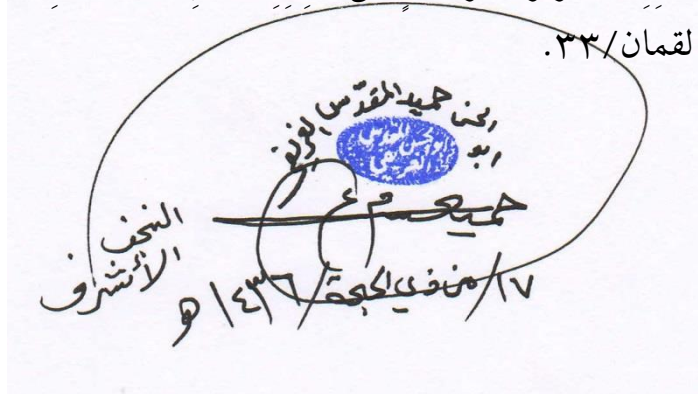 لقمان/٣٣.
ابو الحسن حميد المقدّس الغريفي
ابو الحسن المقدس
الغريفي
النجف
الأشرف
١٧/من ذي الحجة/١٤٣٦هـ